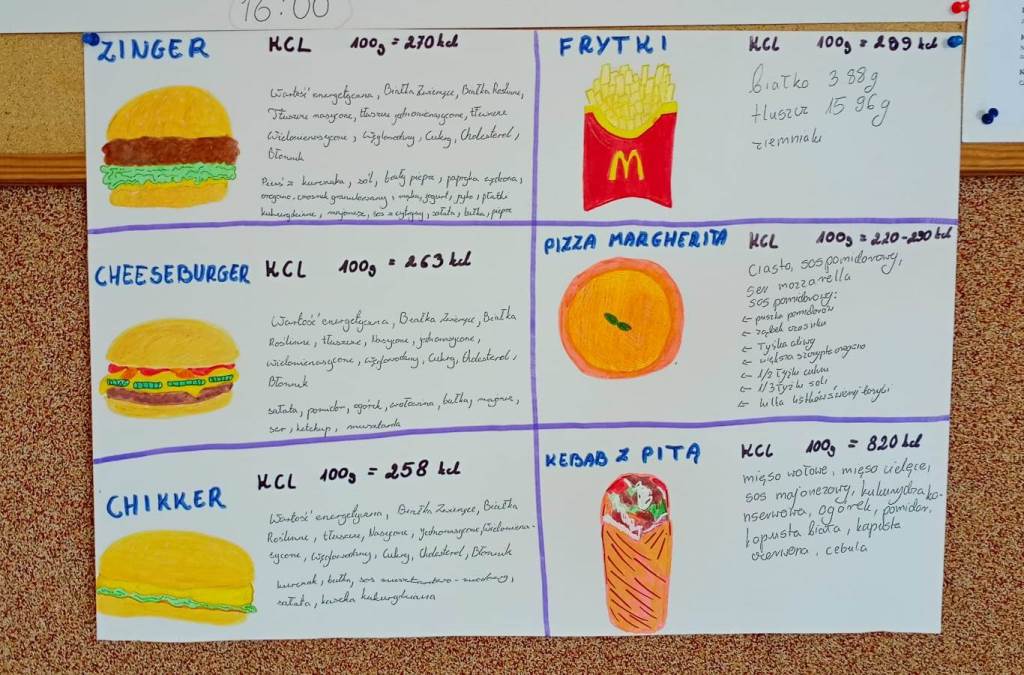 16:00
ZINGER
KCL 100g = 270 kcl
Wartość energetyczna, Białka Zwierzęce, Białka Roślinne,
Tłuszcze nasycone, tłuszcze jednonienasycone, tłuszcze
Wielonienasycone, Węglowodany, Cukry, Cholesterol,
Błonnik
Pierś z kurczaka, sól, biały pieprz, papryka wędzona,
oregano, czosnek granulowany, mąka, jogurt, jajko, płatki
kukurydziane, majonez, sos z cytryny, sałata, bułka, pieprz
CHEESEBURGER
KCL 100g = 263 kcl
Wartość energetyczna, Białka Zwierzęce, Białka
Roślinne, tłuszcze, Nasycone, jednonasycone,
wielonienasycone, węglowodany, Cukry, Cholesterol,
Błonnik
sałata, pomidor, ogórek, wołowina, bułka, majonez,
ser, ketchup, musztarda
CHIKKER
KCL 100g = 258 kcl
Wartość energetyczna, Białka Zwierzęce, Białka
Roślinne, tłuszcze, Nasycone, Jednonasycone, wielonena-
sycone, węglowodany, Cukry, Cholesterol, Błonnik
kurczak, bułka, sos musztardowo-miodowy,
sałata, kaszka kukurydziana
FRYTKI
KCL 100g = 289 kcl
białko 3 88g
tłuszcz 15 96g
ziemniaki
M
PIZZA MARGHERITA
KCL 100g = 220-290 kcl
Ciasto, sos pomidorowy,
ser mozzarella
sos pomidorowy:
← puszka pomidorów
← ząbek czosnku
← Łyżka oliwy
← większa szczypta oregano
← 1/2 łyżki cukru
← 1/3 łyżki soli
← kilka listków świeżej bazylii
KEBAB Z PITĄ
KCL 100g = 820 kcl
mięso wołowe, mięso cielęce,
sos majonezowy, kukurydza ko-
nserwowa, ogórek, pomidor,
kapusta biała, kapusta
czerwona, cebula